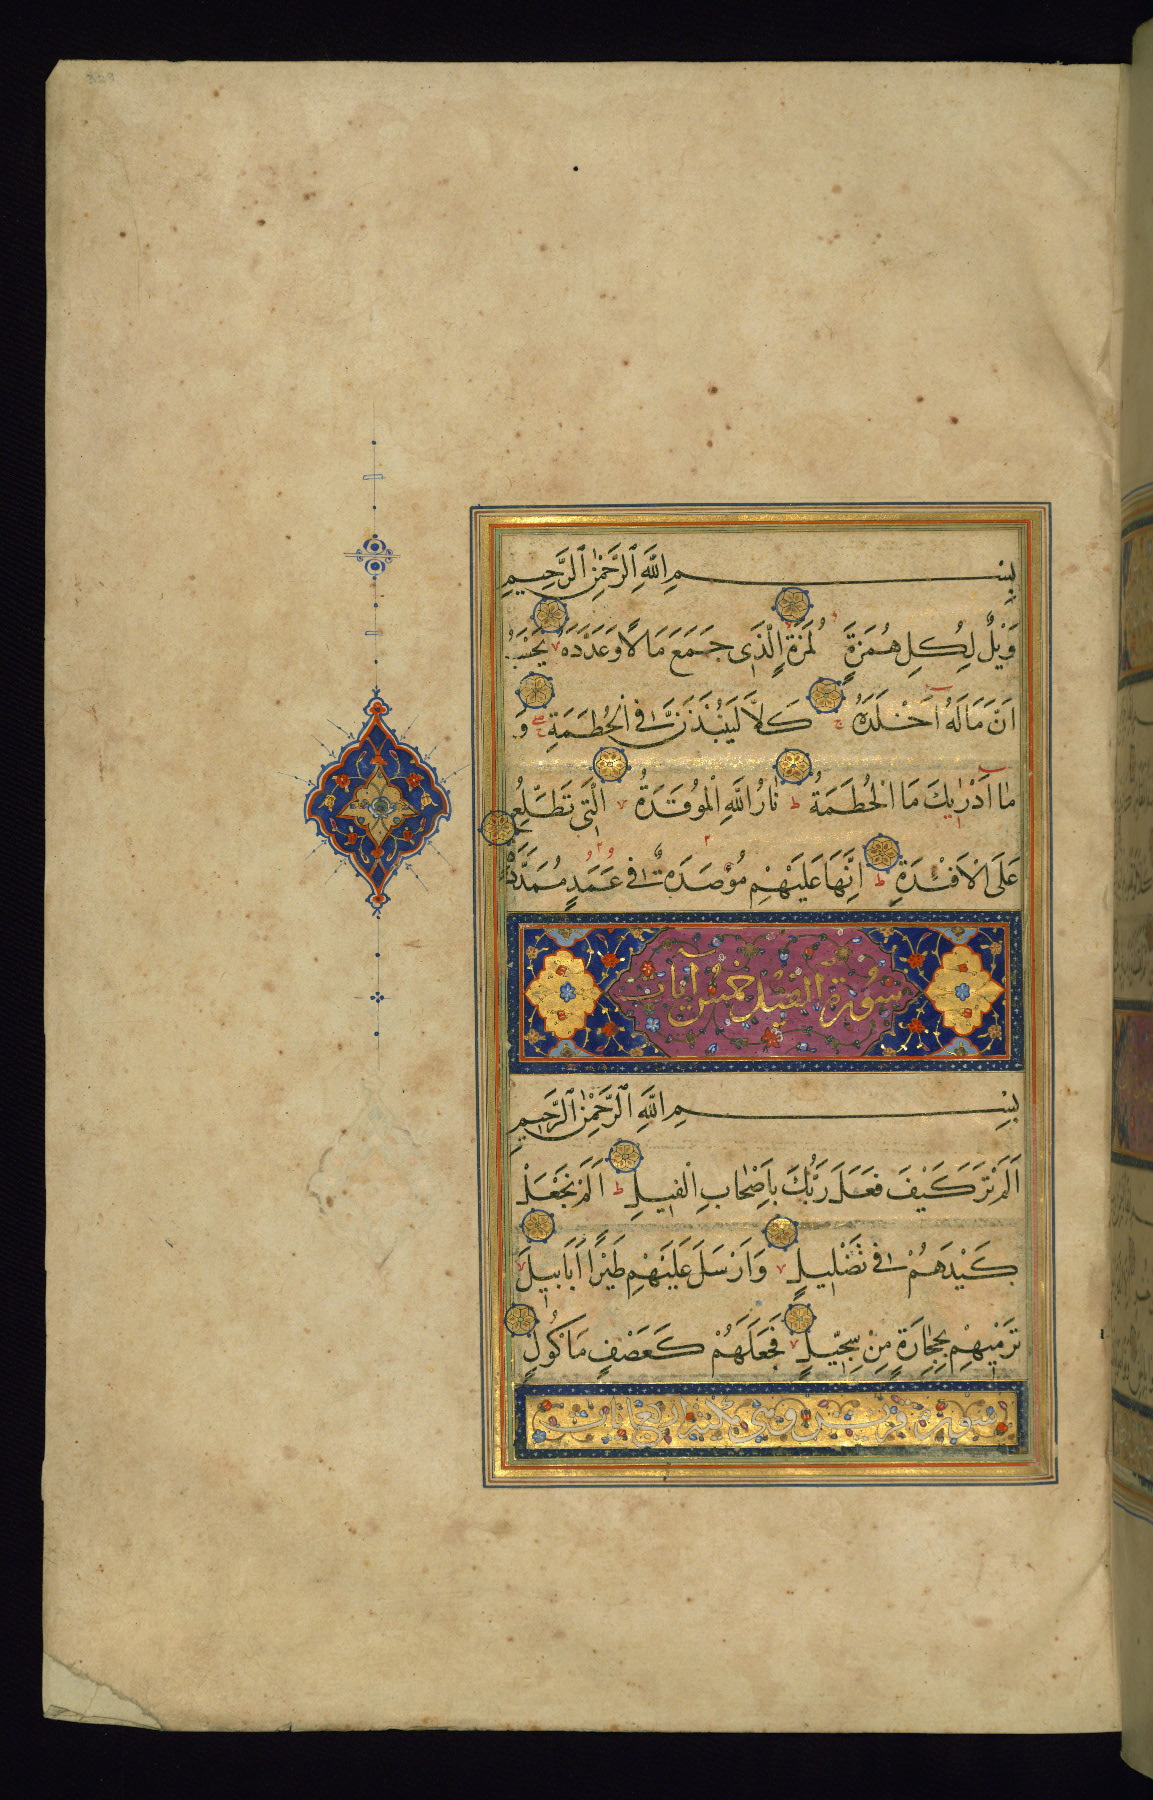 بِسْمِ اللّٰهِ الرَّحْمٰنِ الرَّحِيمِ
وَيْلٌ لِكُلِّ هُمَزَةٍ لُمَزَةٍ الَّذِى جَمَعَ مَالًا وَعَدَّدَهُ يَحْسَبُ
اَنَّ مَالَهُ اَخْلَدَهُ كَلَّا لَيُنْبَذَنَّ فِى الْحُطَمَةِ وَ
مَا اَدْرٰيكَ مَا الْحُطَمَةُ نَارُ اللّٰهِ الْمُوقَدَةُ الَّتِى تَطَّلِعُ
عَلَى الْاَفْـِٔدَةِ اِنَّهَا عَلَيْهِمْ مُؤْصَدَةٌ فِى عَمَدٍ مُمَدَّدَةٍ
سورة الفيل خمس آيات
بِسْمِ اللّٰهِ الرَّحْمٰنِ الرَّحِيمِ
اَلَمْ تَرَ كَيْفَ فَعَلَ رَبُّكَ بِاَصْحَابِ الْفِيلِ اَلَمْ يَجْعَلْ
كَيْدَهُمْ فِى تَضْلِيلٍ وَاَرْسَلَ عَلَيْهِمْ طَيْرًا اَبَابِيلَ
تَرْمِيهِمْ بِحِجَارَةٍ مِنْ سِجِّيلٍ فَجَعَلَهُمْ كَعَصْفٍ مَاْكُولٍ
سورة قريش